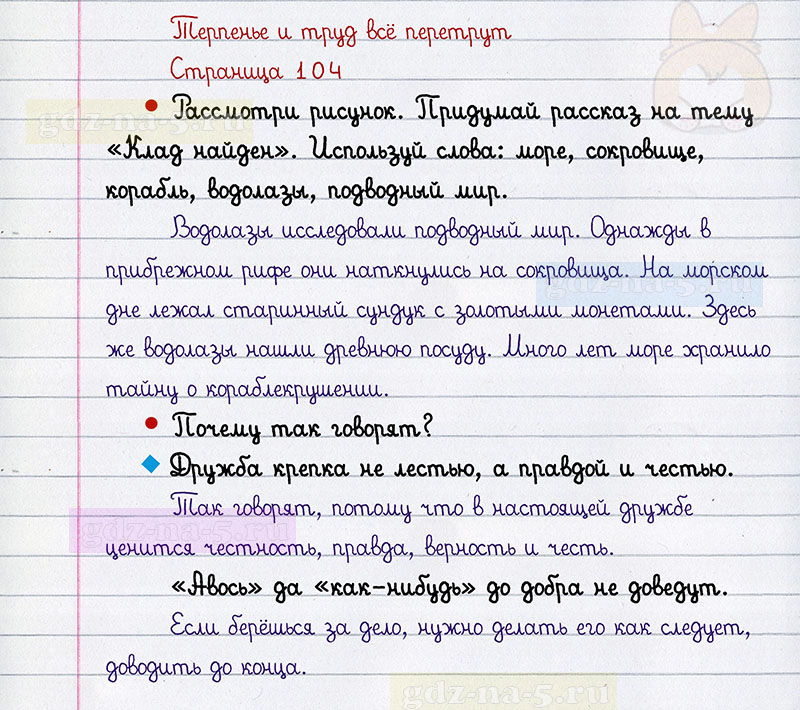 Терпенье и труд всё перетрут
Страница 104
• Рассмотри рисунок. Придумай рассказ на тему
gdz-na-5.ru
«Клад найден». Используй слова: море, сокровище,
корабль, водолазы, подводный мир.
Водолазы исследовали подводный мир. Однажды в
прибрежном рифе они наткнулись на сокровища. На морском
gdz-na-5.ru
дне лежал старинный сундук с золотыми монетами. Здесь
же водолазы нашли древнюю посуду. Много лет море хранило
тайну о кораблекрушении.
• Почему так говорят?
Дружба крепка не лестью, а правдой и честью.
Так говорят, потому что в настоящей дружбе
gdz-na-5.ru
ценится честность, правда, верность и честь.
«Авось» да «как-нибудь» до добра не доведут.
Если берёшься за дело, нужно делать его как следует,
доводить до конца.
gdz-na-5.ru